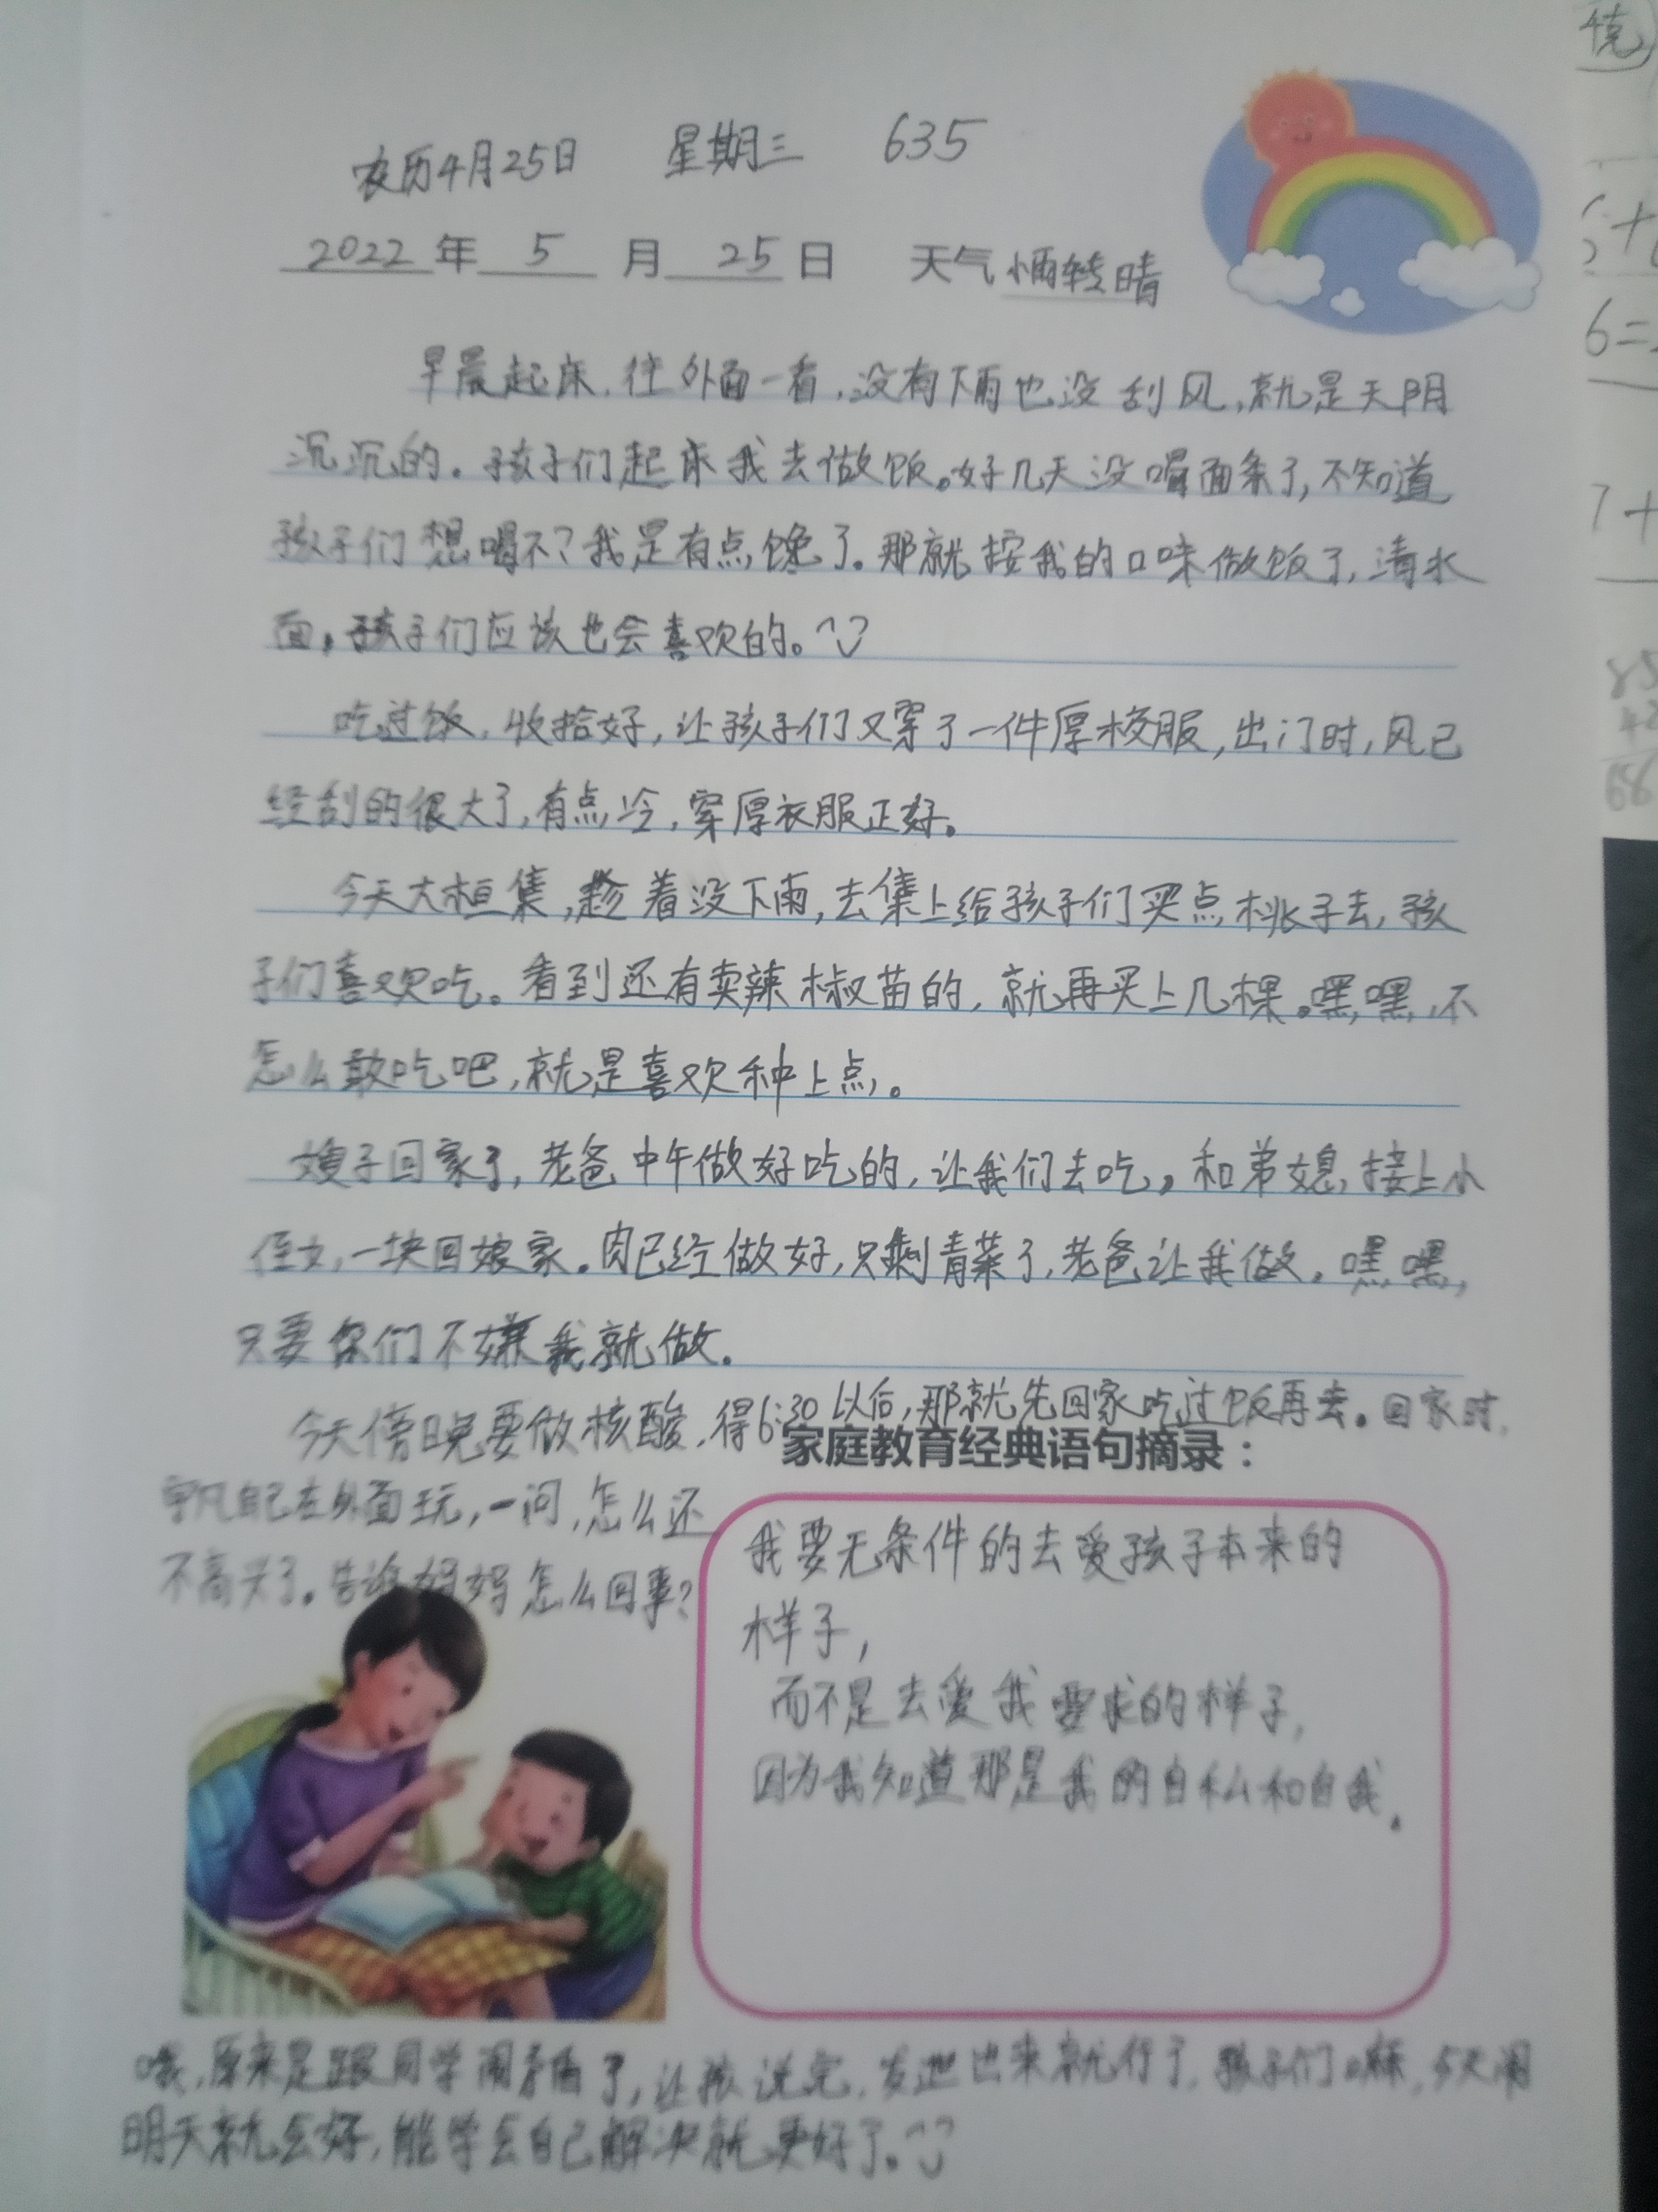 农历4月25日 星期三 635
2022年5月25日 天气小雨转晴
早晨起床,往外面一看,没有下雨也没刮风,就是天阴
沉沉的。孩子们起床我去做饭。好几天没喝面条了,不知道
孩子们想喝不?我是有点馋了。那就按我的口味做饭了,清水
面,孩子们应该也会喜欢的。
吃过饭,收拾好,让孩子们又穿了一件厚校服,出门时,风已
经刮的很大了,有点冷,穿厚衣服正好。
今天大桓集,趁着没下雨,去集上给孩子们买点桃子去,孩
子们喜欢吃。看到还有卖辣椒苗的,就再买上几棵。嘿,嘿,不
怎么敢吃吧,就是喜欢种上点。
嫂子回家了,老爸中午做好吃的,让我们去吃。和弟媳,接上小
侄女,一块回娘家。肉已经做好,只剩青菜了,老爸让我做。嘿,嘿,
只要你们不嫌我就做。
今天傍晚要做核酸,得6:30以后,那就先回家吃过饭再去。回家时,
宇凡自己在外面玩,一问,怎么还
不高兴了。告诉妈妈怎么回事?
家庭教育经典语句摘录:
我要无条件的去爱孩子本来的
样子,
而不是去爱我要求的样子,
因为我知道那是我的自私和自我。
哦,原来是跟同学闹矛盾了,让孩说完,发泄出来就行了,孩子们嘛,今天闹
明天就会好,能学会自己解决就更好了。